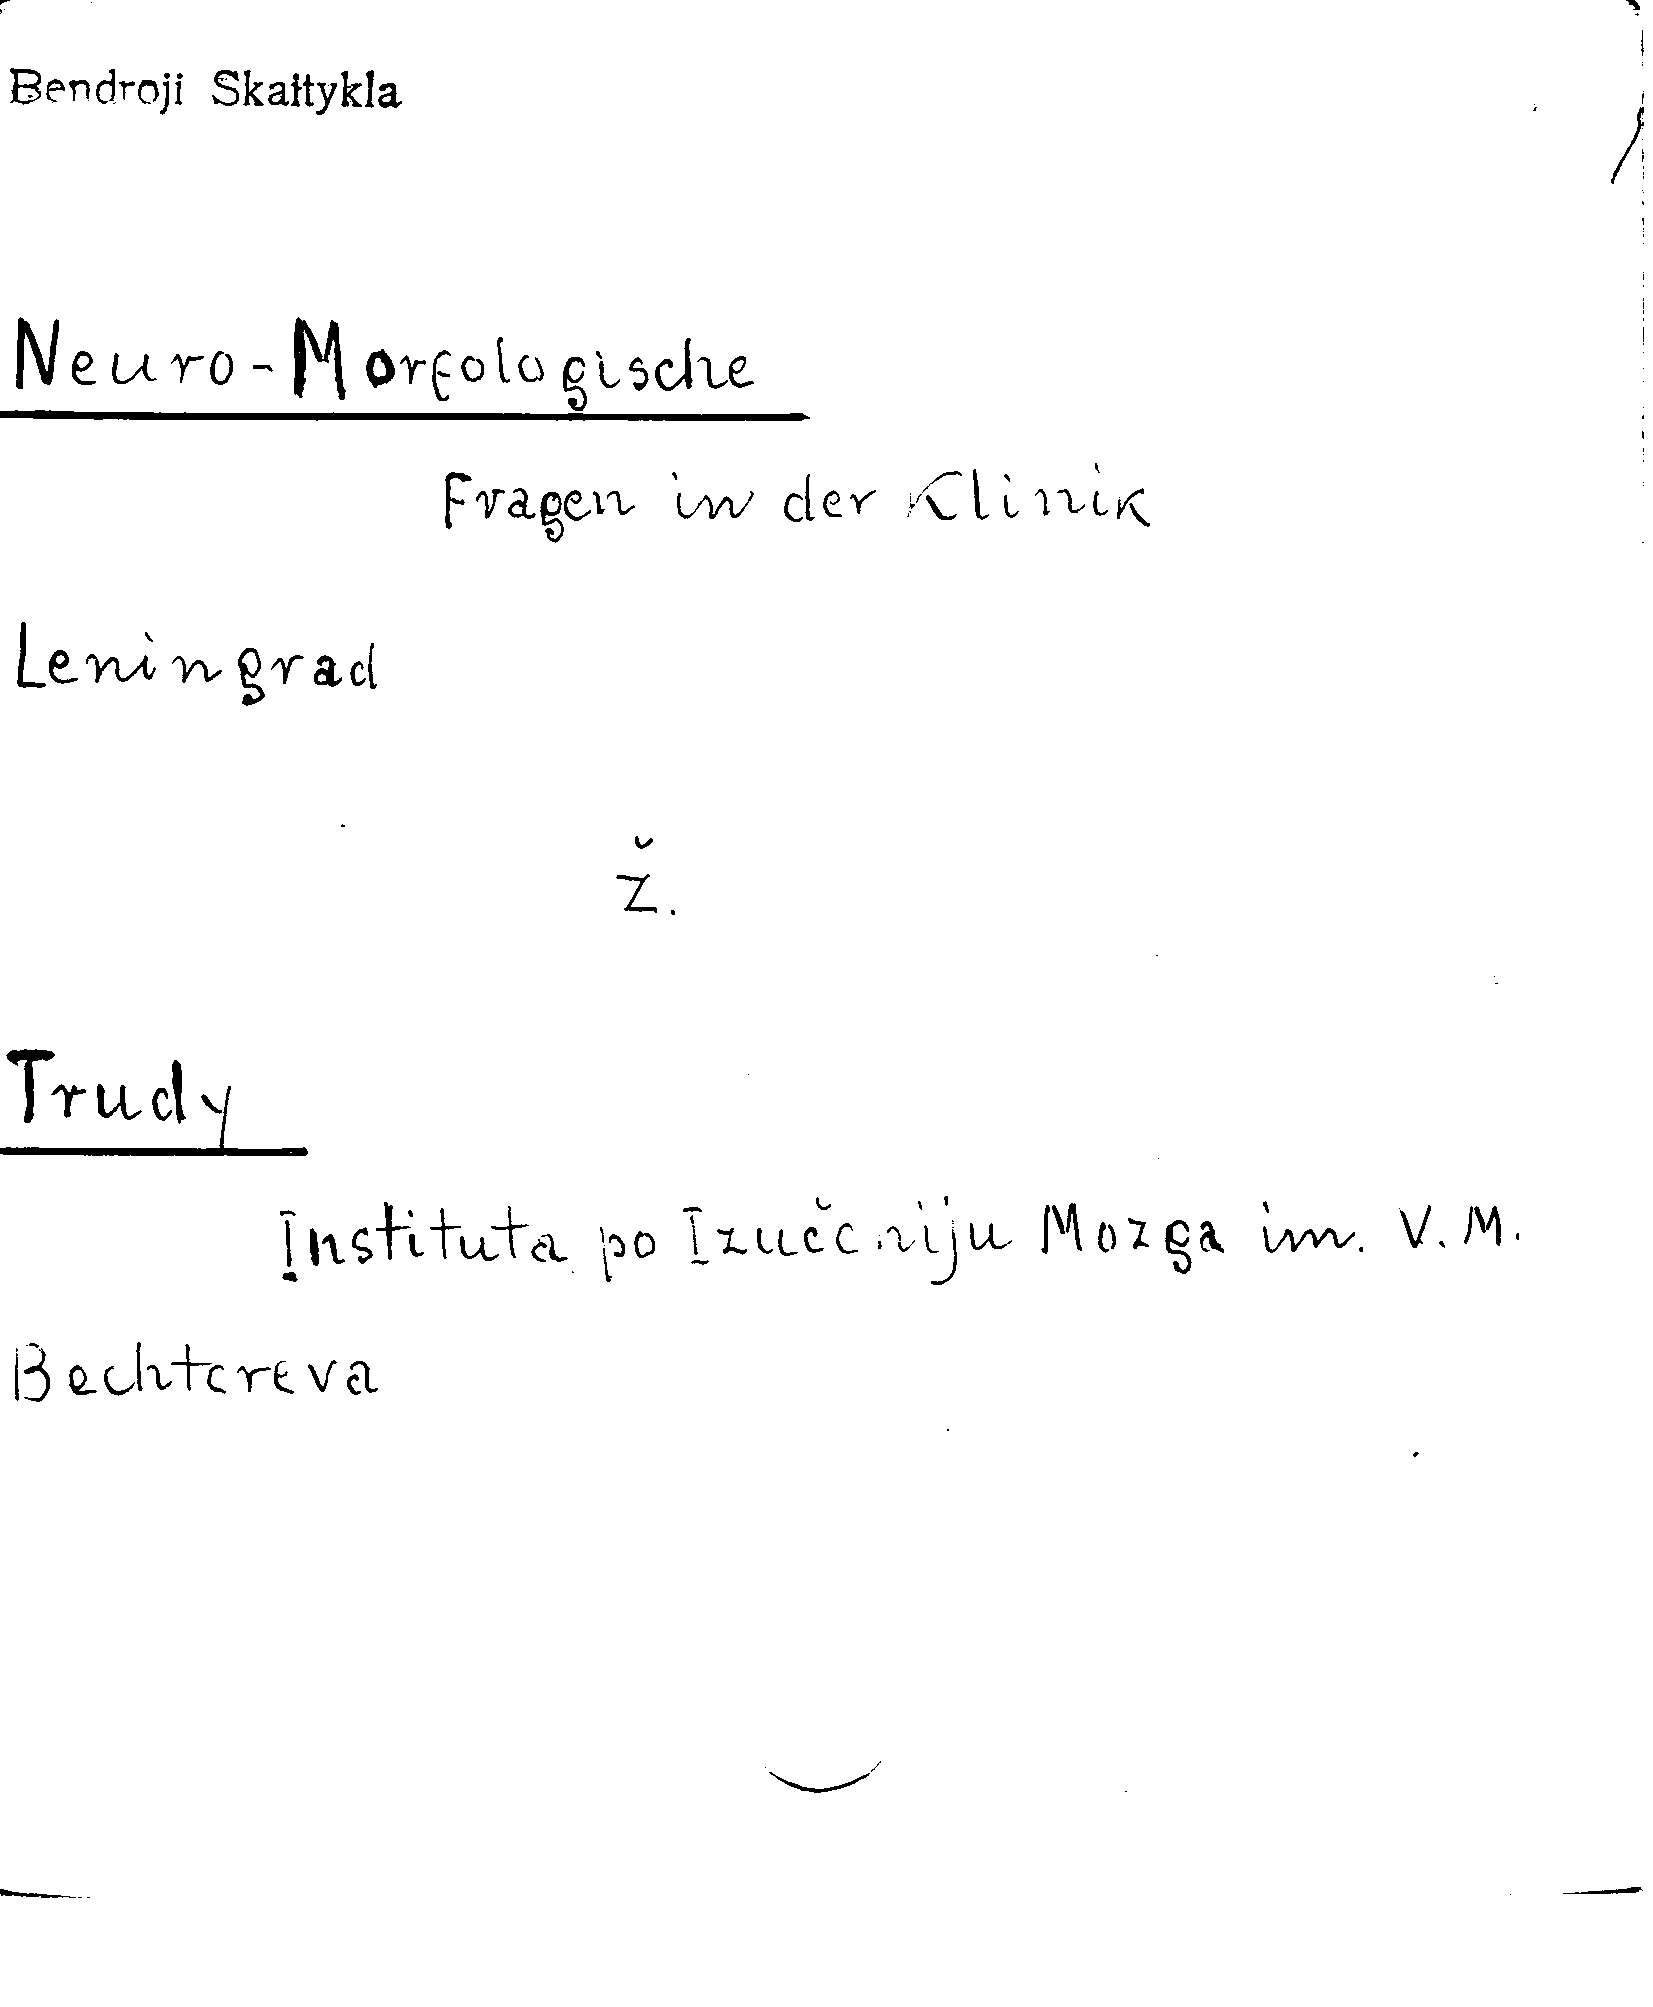 Bendroji Skaitykla
Neuro-Morfologische
Fragen in der Klinik
Leningrad
Ž.
Trudy
Instituta po Izučeniju Mozga im. V. M.
Bechtereva